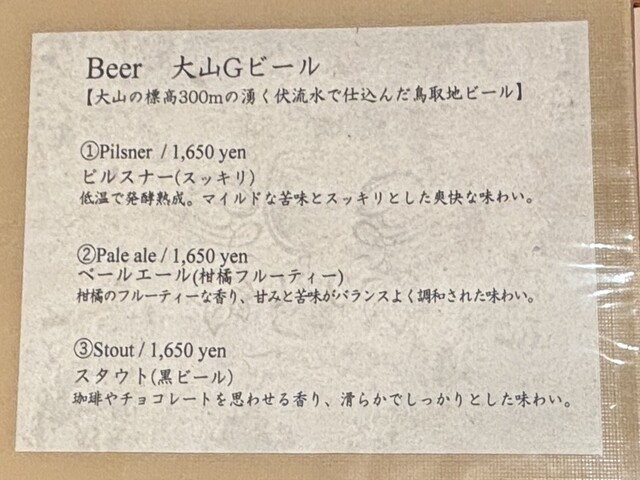 Beer 大山Gビール
【大山の標高300mの湧く伏流水で仕込んだ鳥取地ビール】
①Pilsner / 1,650 yen
ピルスナー(スッキリ)
低温で発酵熟成。マイルドな苦味とスッキリとした爽快な味わい。
②Pale ale / 1,650 yen
ペールエール(柑橘フルーティー)
柑橘のフルーティーな香り、甘みと苦味がバランスよく調和された味わい。
③Stout / 1,650 yen
スタウト(黒ビール)
珈琲やチョコレートを思わせる香り、滑らかでしっかりとした味わい。